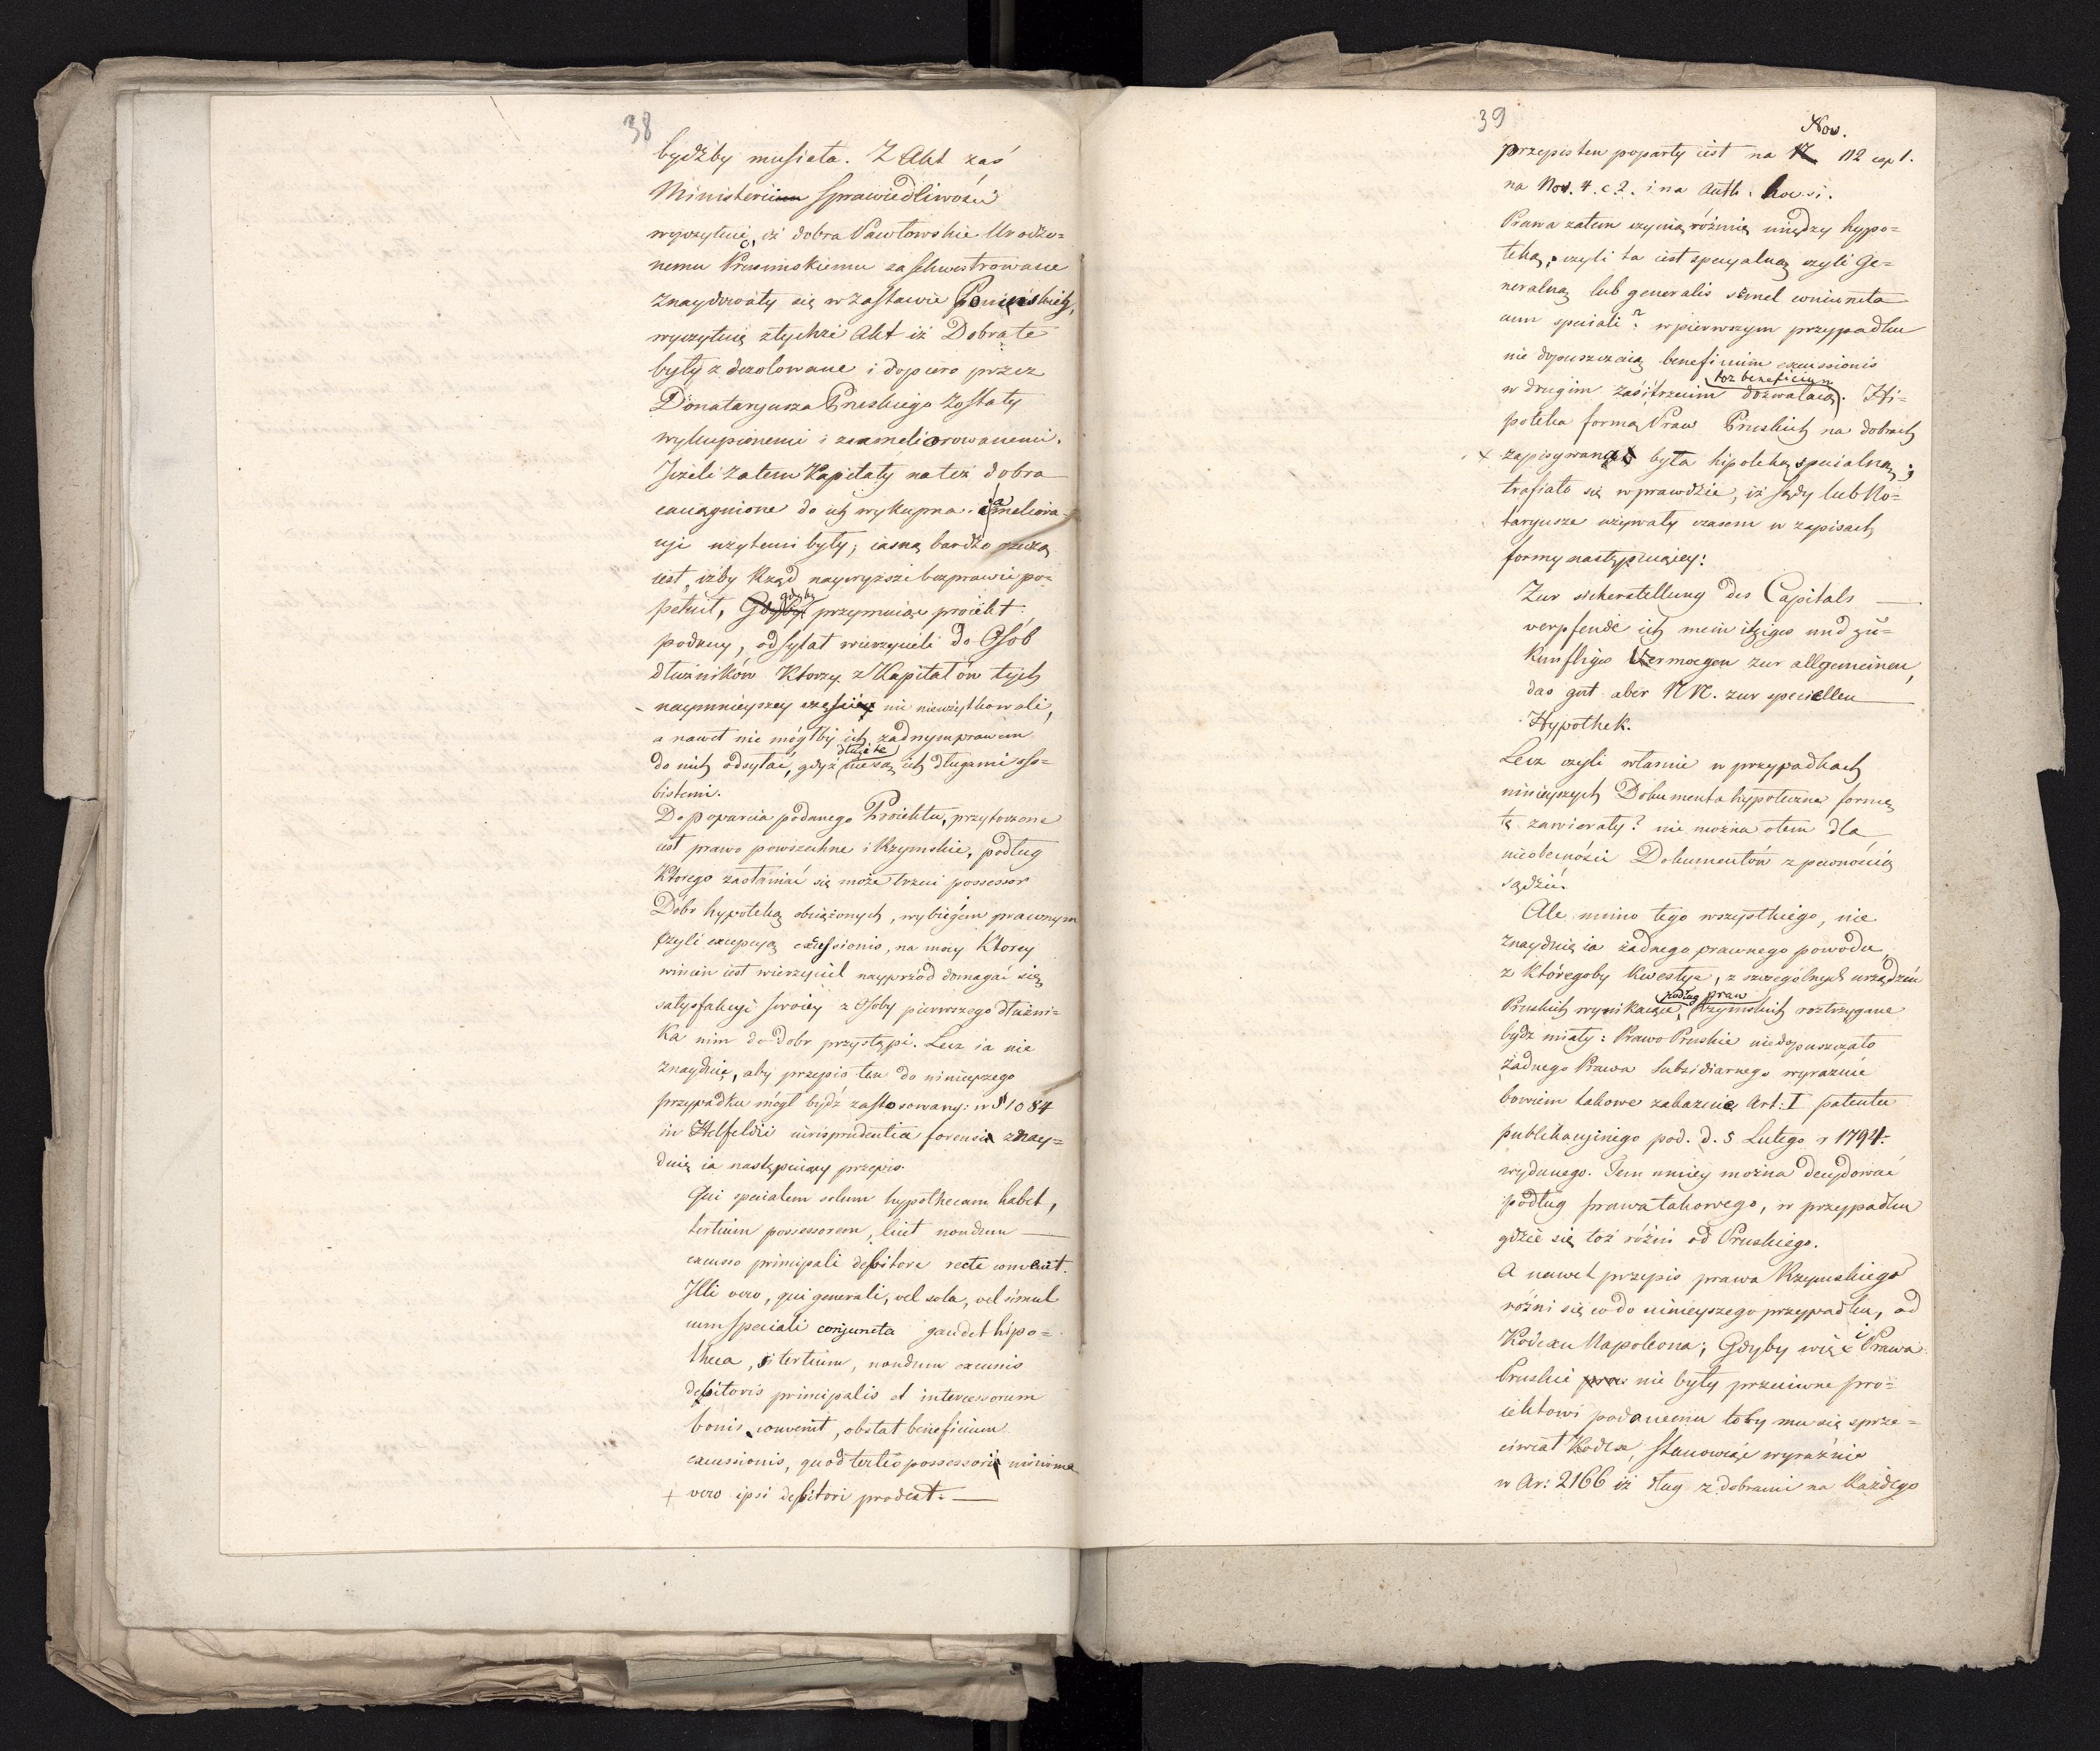 38
bydźby musiała. Z Akt zaś
Ministerium Sprawiedliwości
wyczytuię, iż dobra Pawłowskie Urodzo-
nemu Prusimskiemu zasekwestrowane
znaydowały się w zastawie Ponińskich,
wyczytuię z tychże Akt iż Dobra te
były zdezolowane i dopiero przez
Donataryusza Pruskiego zostały
wykupionemi i zameliorowanemi.
Jeżeli zatem Kapitały na też dobra
zaciągnione do ich wykupna i meliora-
cyi użytemi były; iasną bardzo rzeczą
iest, iżby Rząd naywyższe bezprawie po-
pełnił, gdyby przyimuiąc proiekt
podany, odsyłał wierzycieli do Osób
dłużników którzy z Kapitałów tych
naymnieyszey części nie nieużytkowali,
a nawet nie mógłby ich żadnym prawem
do nich odsyłać, gdyż długi te nie są ich długami oso-
bistemi.
Do poparcia podanego Proiektu, przytoczone
iest prawo powszechne i Rzymskie, podług
którego zasłaniać się może trzeci possessor
Dóbr hypoteką obciążonych, wybiegiem prawnym
czyli excepcyą excussionis, na mocy którey
winien iest wierzyciel nayprzód domagać się
satysfakcyi swoiey z Osoby pierwszego dłużni-
ka nim do dobr przystąpi. Lecz ia nie
znayduię, aby przepis ten do ninieyszego
przypadku mógł bydź zastosowany: w § 1084
in Helfeldii iurisprudentia forensi znay-
duię ia następuiący przepis.
Qui specialem solum hypothecam habet,
tertium possessorem, licet nondum
excusso principali debitore recte convenit.
Illi vero, qui generali, vel sola, vel simul
cum speciali conjuncta gaudet hipo-
theca, si tertium, nondum excussis
debitoris principalis et intercessorum
bonis convenit, obstat beneficium
excussionis, quod tertio possessori minime
+ vero ipsi debitori prodest.
39
Nov.
przepis ten poparty iest na 112 cap 1.
na Nov. 4. c 2. i na Auth. hoc si.
Prawa zatem czynią różnicę między hypo-
teką, czyli ta iest specyalną czyli Ge-
neralną lub generalis simel coniuncta
cum speciali? w pierwszym przypadku
nie dopuszczaią beneficium excussionis
w drugim zaś i trzecim toż beneficium dozwalaią. Hi-
poteka formą Praw Pruskich na dobrach
+ zapisywana była hipoteką specialną;
trafiało się wprawdzie, iż sądy lub No-
taryusze używały czasem w zapisach
formy następuiącey:
Zur sicherstellung des Capitals
verpfende ich mein itziges und zu-
künftiges Vermoegen zur allgemeinen,
das gut aber N N. zur speciellen
Hypothek.
Lecz czyli własnie w przypadkach
ninieyszych Dokumenta hypoteczne formę
tę zawierały? nie można o tem dla
nieobecności Dokumentów z pewnością
sądzić.
Ale mimo tego wszystkiego, nie
znayduię ia żadnego prawnego powodu,
z któregoby kwestye, z szczególnych urządzeń
Pruskich wynikaiące, podług praw Rzymskich roztrzygane
bydź miały: Prawo Pruskie niedopuszczało
żadnego Prawa Subsidiarnego wyraźnie
bowiem takowe zakazuie Art: I patentu
publikacyinego pod. d. 5 Lutego r 1794.
wydanego. Tem mniey można decydować
podług prawa takowego, w przypadku
gdzie się toż różni od Pruskiego.
A nawet przepis prawa Rzymskiego
różni się co do ninieyszego przypadku, od
Kodexu Napoleona; Gdyby więc i Prawa
Pruskie nie były przeciwne pro-
iektowi podanemu toby mu się sprze-
ciwiał Kodex, stanowiąc wyraźnie
w Ar: 2166 iż dług z dobrami na każdego